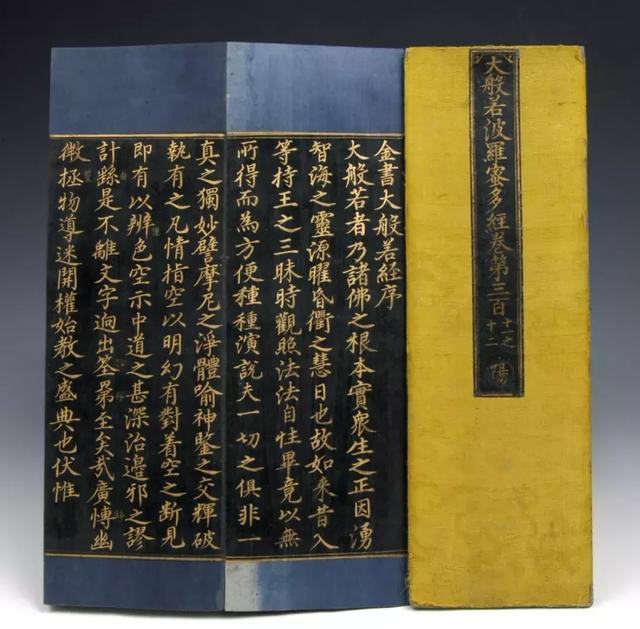 大般若波羅蜜多經卷第三百十一之十二
陽
金書大般若經序
大般若者乃諸佛之根本實衆生之正因湧
智海之靈源曜昏衢之慧日也故如来昔入
等持王之三昧時觀照法法自性畢竟以無
所得而為方便種種演說夫一切之俱非一
真之獨妙譬摩尼之淨體喻神鑒之交輝破
執有之凡情指空以明幻有對着空之断見
即有以辨色空示中道之甚深治邊邪之謬
計繇是不離文字逈出筌罤至矣㢤廣慱幽
微極物導迷開權始教之盛典也伏惟